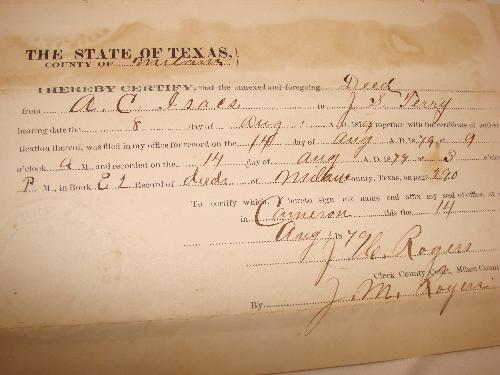 THE STATE OF TEXAS,
COUNTY OF Milam
I HEREBY CERTIFY, that the annexed and foregoing Deed
from A. C. Isacs to J. S. Terry
bearing date the 8 day of Aug. A. D. 1879 together with the certificate of authen-
tication thereof, was filed in my office for record on the 14 day of Aug A. D. 1879 at 9
o'clock A M., and recorded on the 14 day of Aug A. D. 1879 at 3 o'cloc
P M., in Book E 2 Record of deeds of Milam County, Texas, on page 290
To certify which, I hereto sign my name and affix my seal of office, at
in Cameron this the 14
Aug. 1879
J C. Rogers
Clerk County Court, Milam Coun
By J. M. Rogers